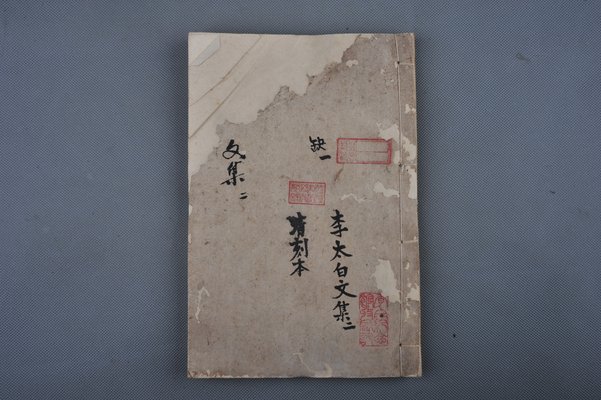 缺一
李太白文集二
清刻本
文集二